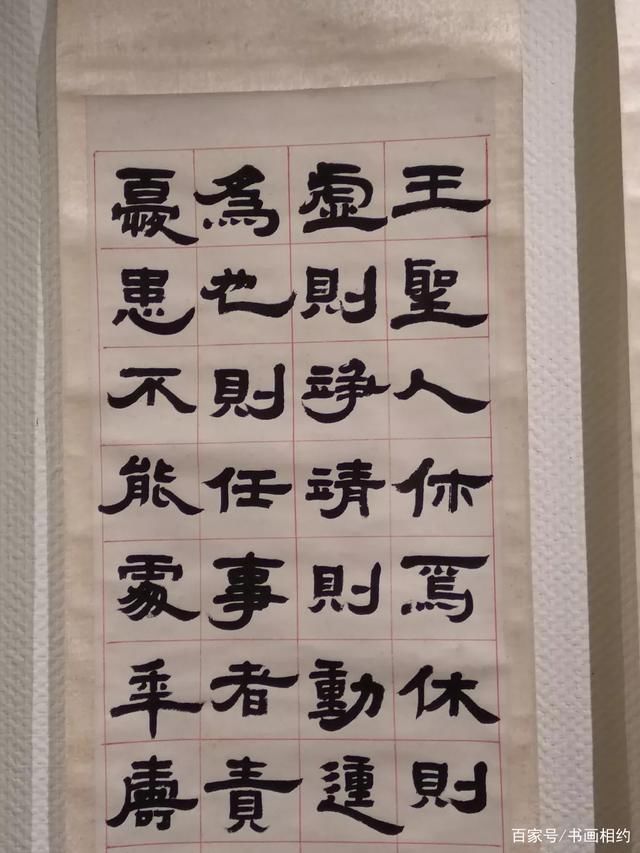 王聖人休焉休則
虛則竫靖則動運
為也則任事者責
憂患不能處年壽
百家号/书画相约